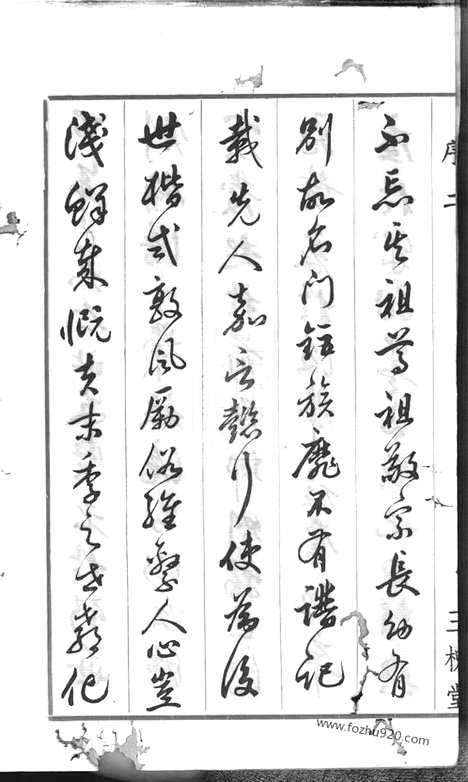 序二
不忘其祖尊祖敬宗長幼有
別故名門鉅族靡不有譜記
載先人嘉言懿行使為後
世楷式敦風勵俗維繫人心豈
淺鮮哉慨夫末季之世教化
三槐堂
www.fozhu920.com